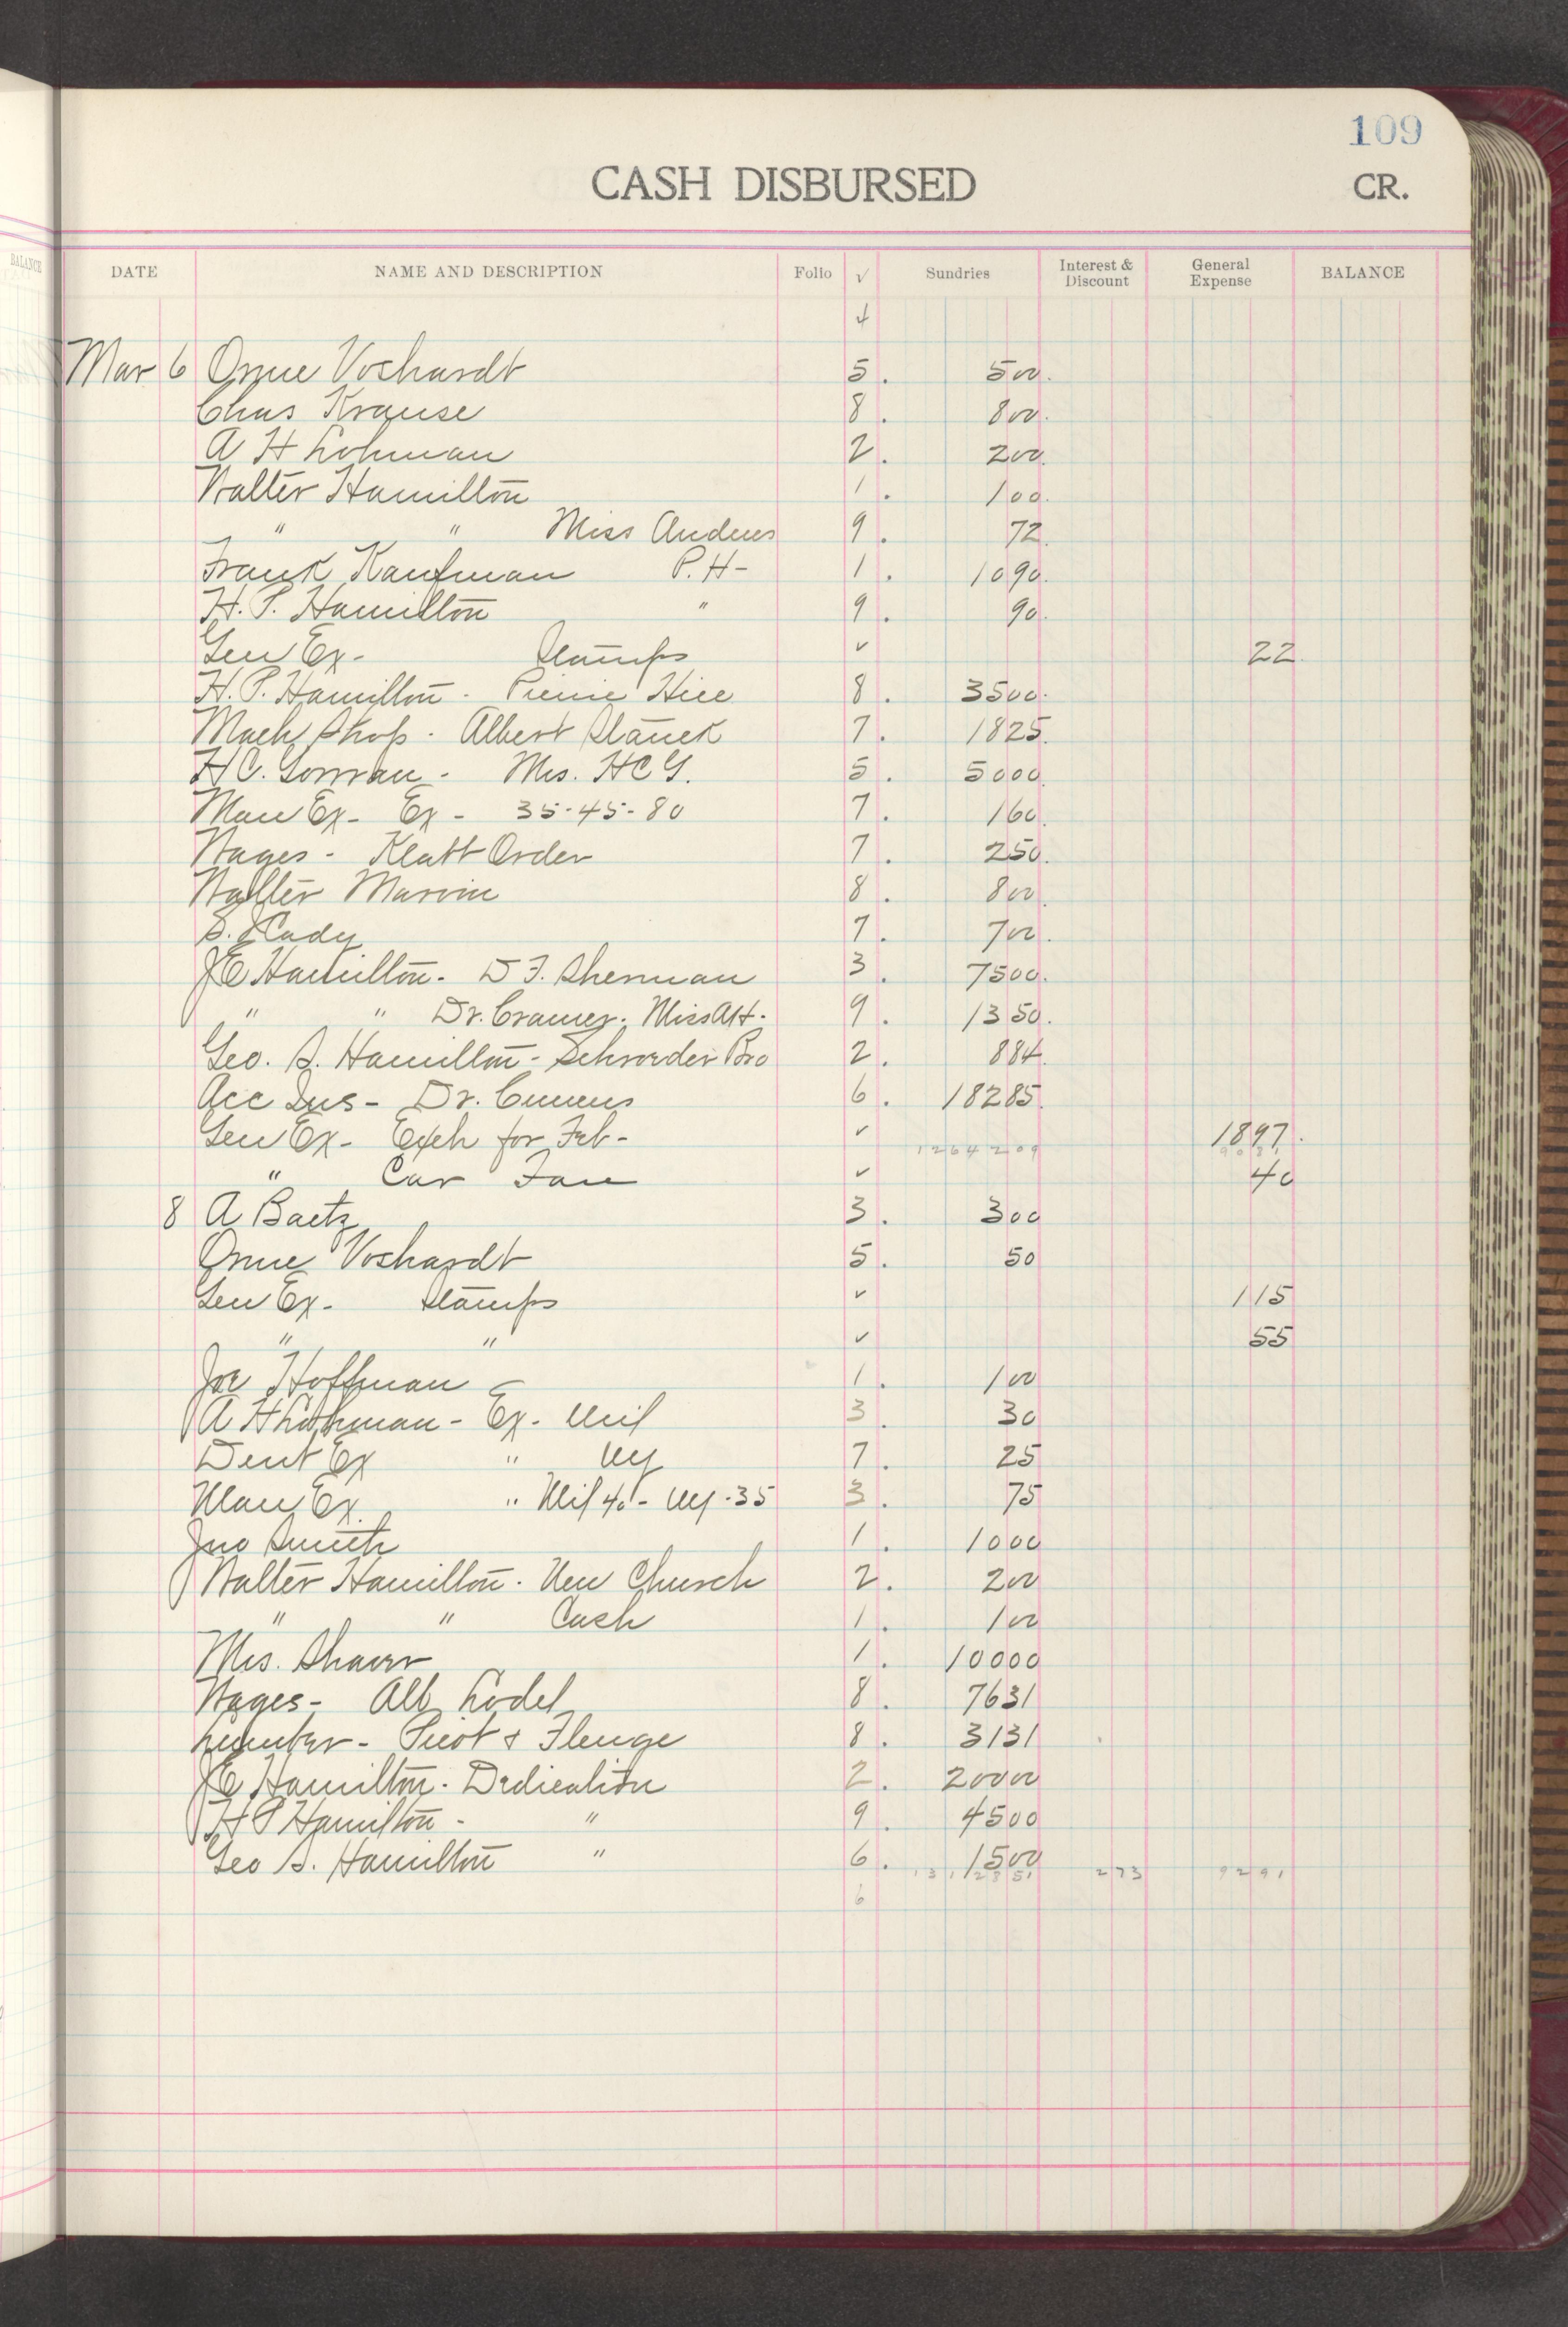 109
CASH DISBURSED CR.
BALANCE
DATE NAME AND DESCRIPTION Folio √ Sundries Interest & Discount General Expense BALANCE
4
Mar 6 Orme Voshardt 5. 500.
Chas Krause 8. 800.
A H Lohman 2. 200.
Walter Hamilton 1. 100.
" " Miss Andrus 9. 72.
Frank Kaufman P.H- 1. 1090.
H.P. Hamilton " 9. 90.
Gen Ex- Stamps ✓ 22.
H.P. Hamilton - Hice 8. 3500.
Mach Shop - Albert Stanek 7. 1825.
H C. Gorman - Mrs. H C G. 5. 5000.
Man Ex- Ex- 35-45-80 7. 160.
Wages - Klatt Order 7. 250.
Walter Marvin 8. 800.
S. Cady 7. 700.
J E Hamilton - D F. Sherman 3. 7500.
" " Dr. Cramer. Miss A H - 9. 1350.
Geo. S. Hamilton - Schroeder Bro 2. 884.
Acc Ins - Dr. 6. 18285.
Gen Ex- Exch for Feb- ✓ 1897.
1264209 9081
" Car Fare ✓ 40
8 A Baetz 3. 300
Orme Voshardt 5. 50
Gen Ex- Stamps ✓ 115
" " ✓ 55
Joe Hoffman 1. 100
A H Lohman - Ex- Mil 3. 30
Dent Ex " NY 7. 25
Man Ex. " Mil 40 - NY - 35 3. 75
Jno Smith 1. 1000
Walter Hamilton - New Church 2. 200
" " Cash 1. 100
Mrs. Shaver 1. 10000
Wages - Alb Lodel 8. 7631
Lumber - & Flenge 8. 3131
J E Hamilton - Dedication 2. 20000
H P Hamilton - " 9. 4500
Geo S. Hamilton " 6. 1500
1312851 273 9291
6